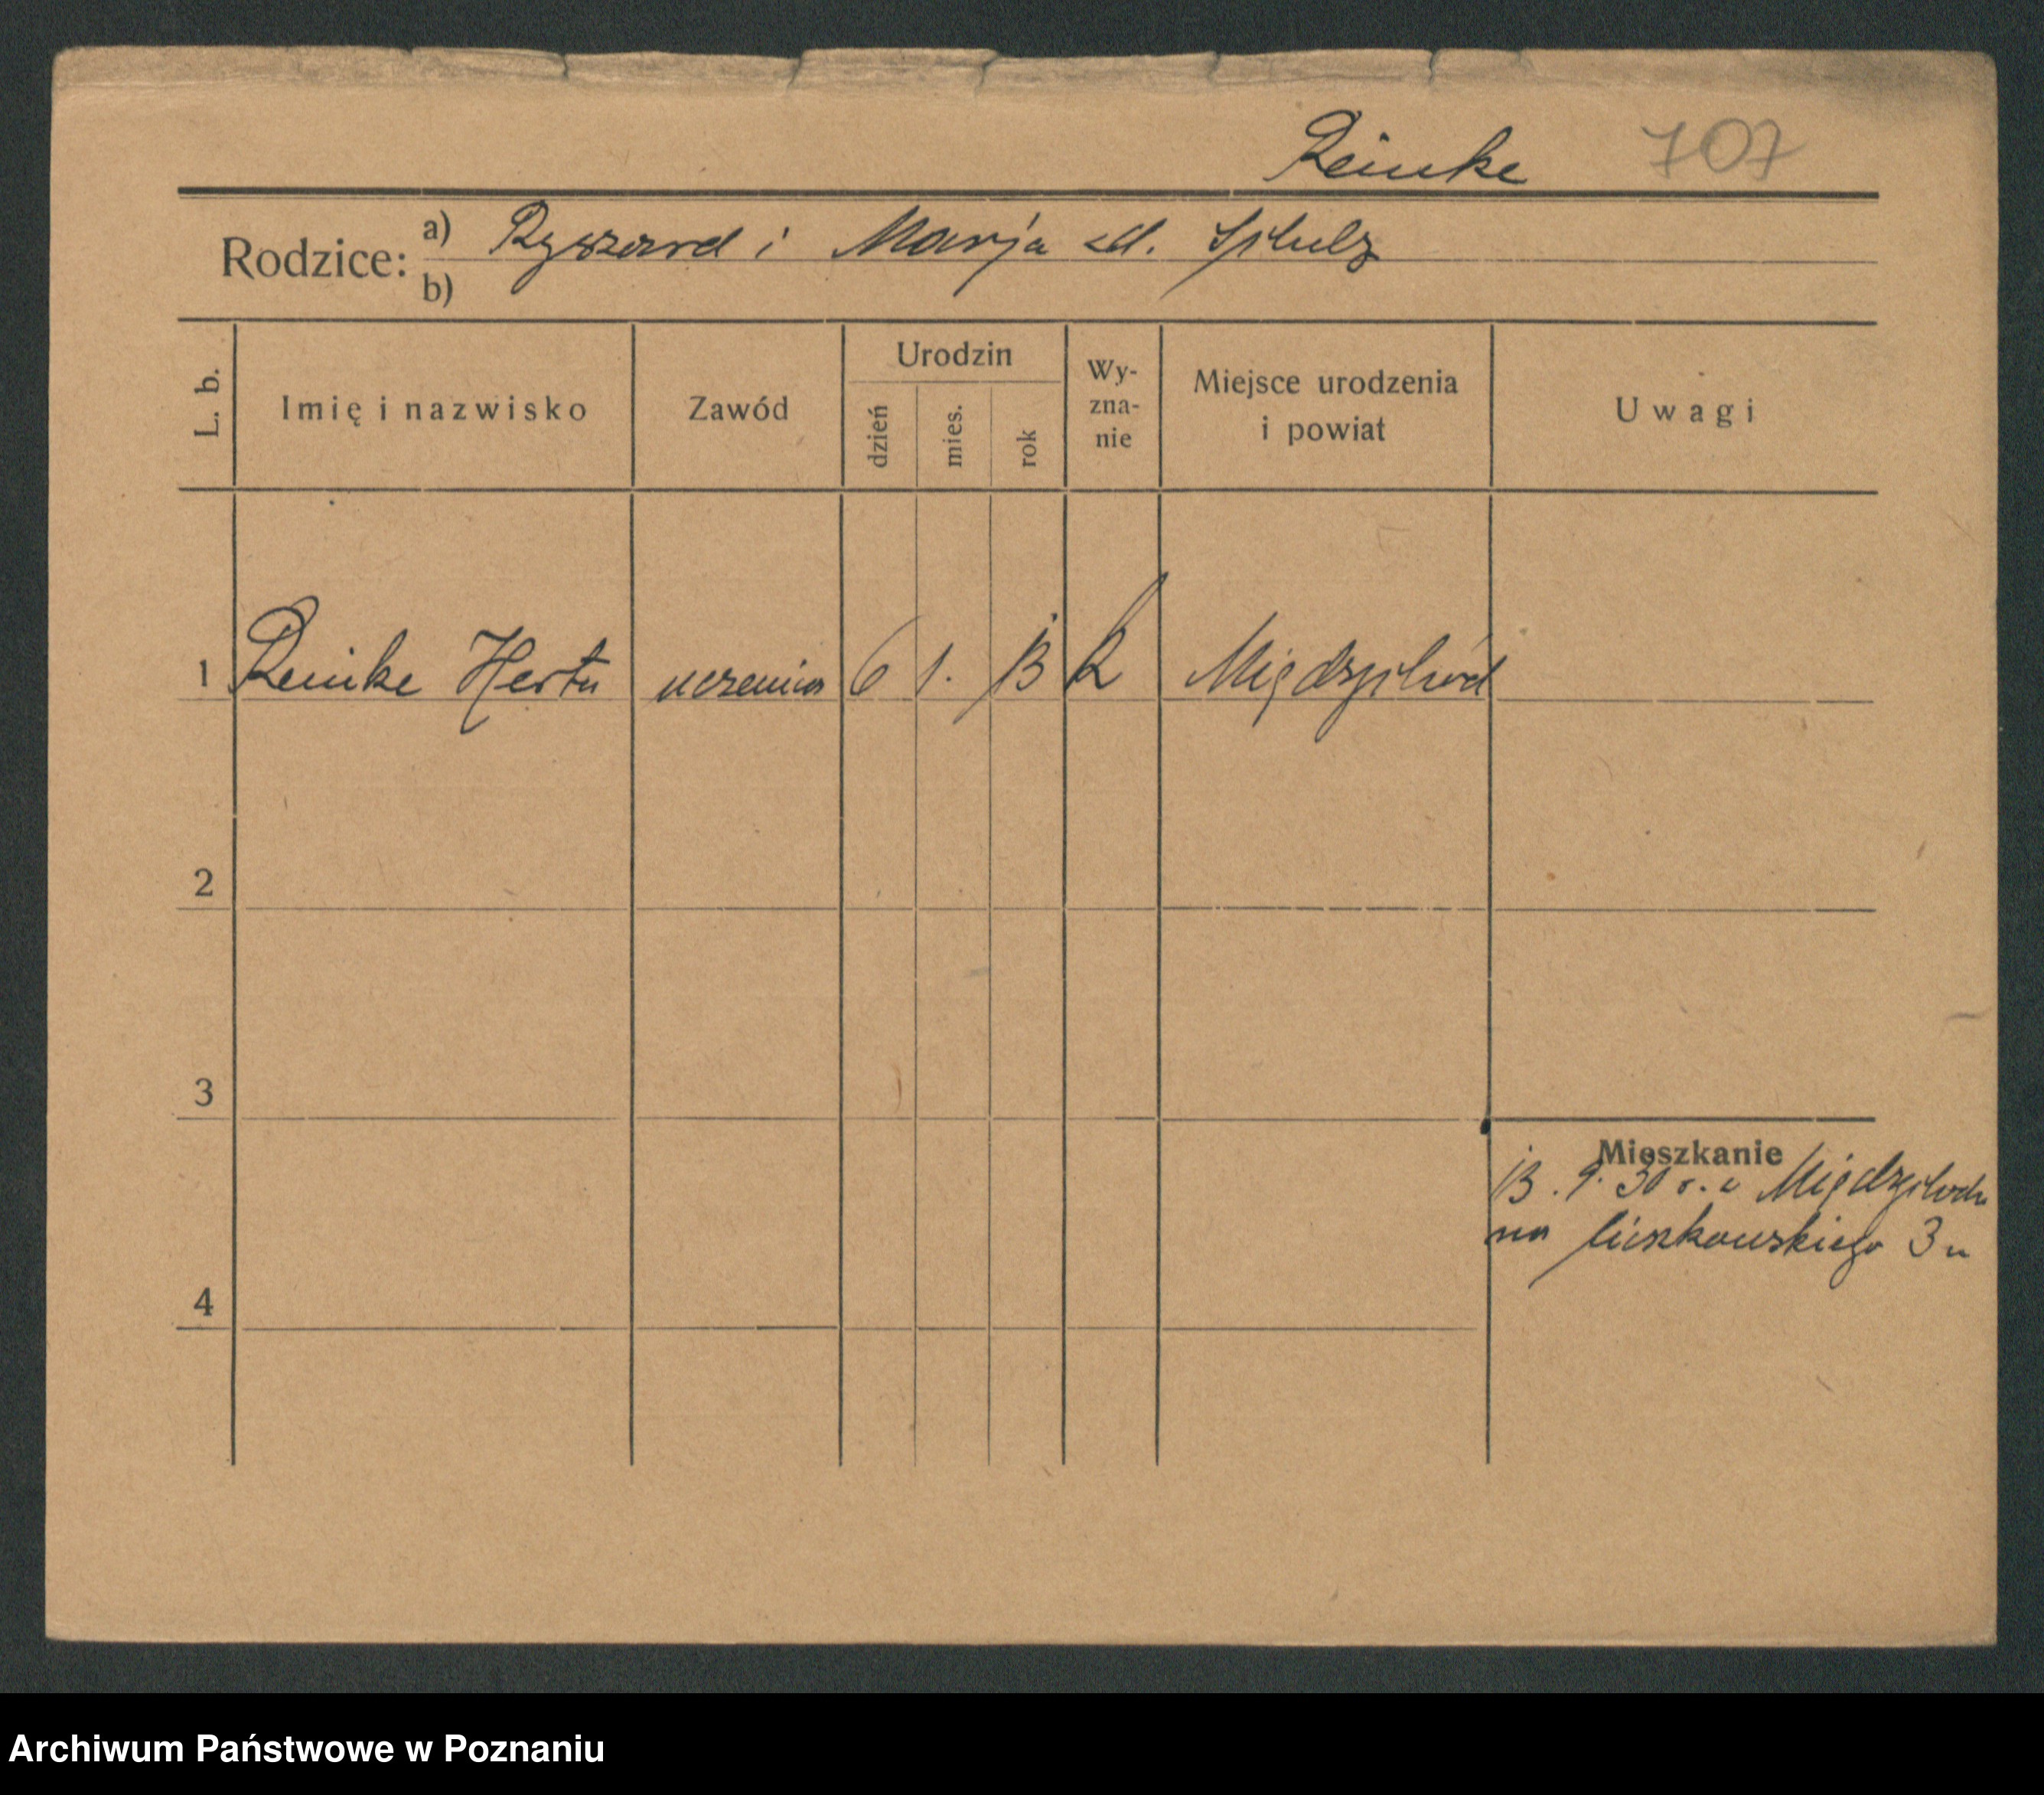 Reinke 707
Rodzice: a) Ryszard i Marja zd. Schulz
b)
L. b. Imię i nazwisko Zawód Urodzin dzień mies. rok Wy-zna-nie Miejsce urodzenia i powiat Uwagi
1 Reinke Herta uczenica 6 1. 13 k Międzychód
2
3
4
Mieszkanie
13. 9. 30 r. z Międzychodu
na 3
Archiwum Państwowe w Poznaniu